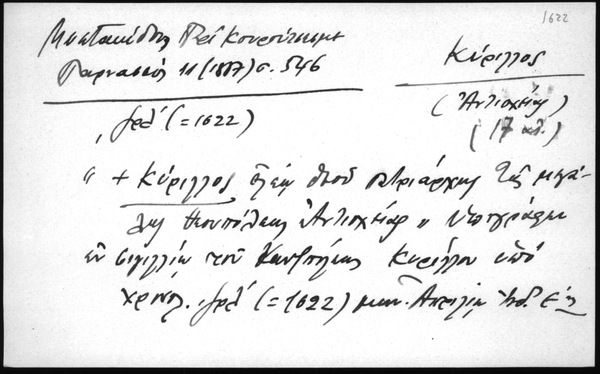 1622
Κύριλλος
Παρνασσός 11 (1887) σ. 546
(Ἀντιοχείας)
(17 αἰ.)
͵αχκβ´ (=1622)
" + Κύριλλος ἐλέῳ Θεοῦ πατριάρχης τῆς μεγά-
λης Θεουπόλεως Ἀντιοχείας " ὑπογράφει
ἐν σιγιλλίῳ τοῦ Κων/πόλεως Κυρίλλου ὑπό
χρονολ. ͵αχκβ´ (=1622) μην. Ἀπριλίῳ Ἰνδ. ε´ης